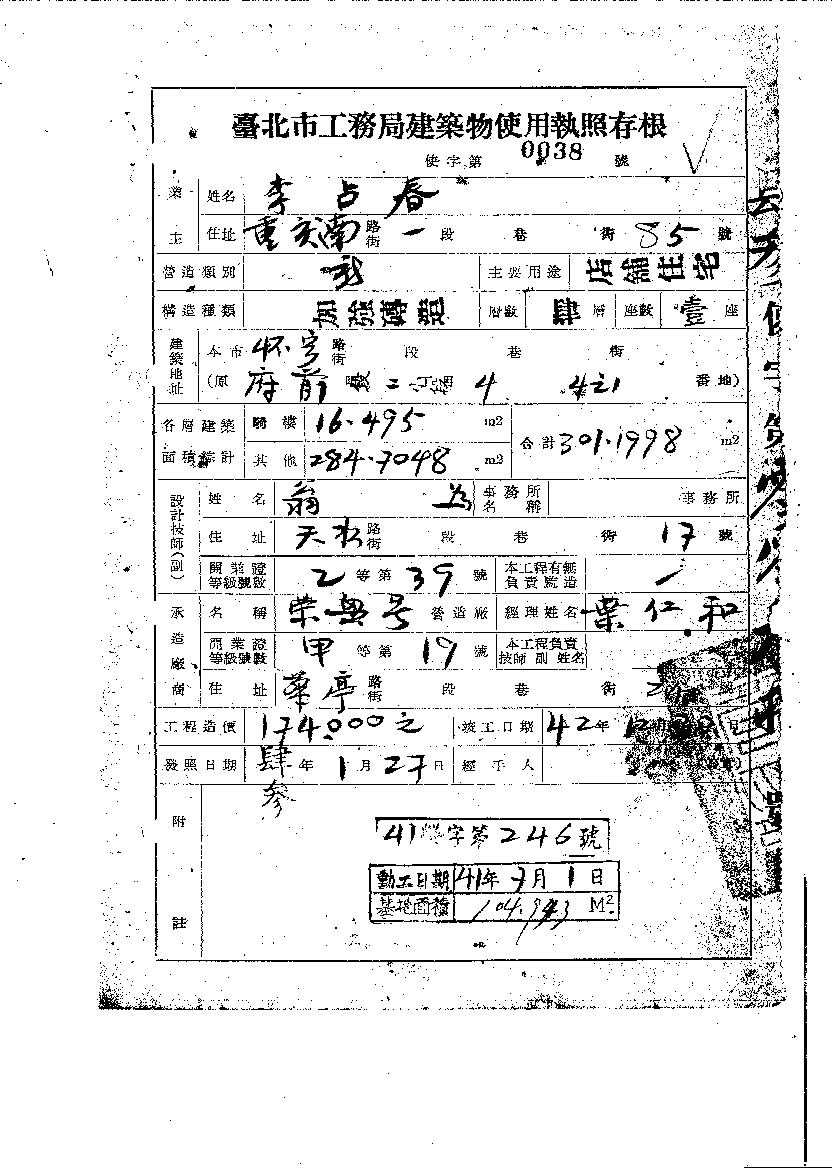 臺北市工務局建築物使用執照存根
使字第 0038 號
業主 姓名 李占春
住址 重慶南 路街 一 段 巷 街 85 號
營造類別 新 主要用途 店舖住宅
構造種類 加強磚造 層數 肆 層 座數 壹 座
建築地址 本市 怀宁 路街 段 巷 街
(原 府前 段 二 4 番地)
各層建築面積綜計 騎樓 16.495 m2 合計 301.1998 m2
其他 284.7048 m2
設計技師(副) 姓名 翁 為 事務所名稱 事務所
住址 天水 路街 段 巷 街 17 號
開業證等級號數 乙 等第 39 號 本工程有無負責監造
承造廠商 名稱 榮興号 營造廠 經理姓名 葉仁和
開業證等級號數 甲 等第 19 號 本工程負責技師副姓名
住址 華亭 路街 段 巷 街 號
工程造價 174.000元 竣工日期 42年 12月 日
發照日期 肆參 年 1月 27日 經手人
附註
41 字第246號
動工日期 41年7月1日
基地面積 104.943 M2